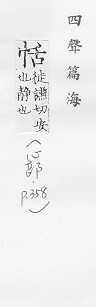 四聲篇海
恬
徒謙切安
也靜也
(心部.
p.358)